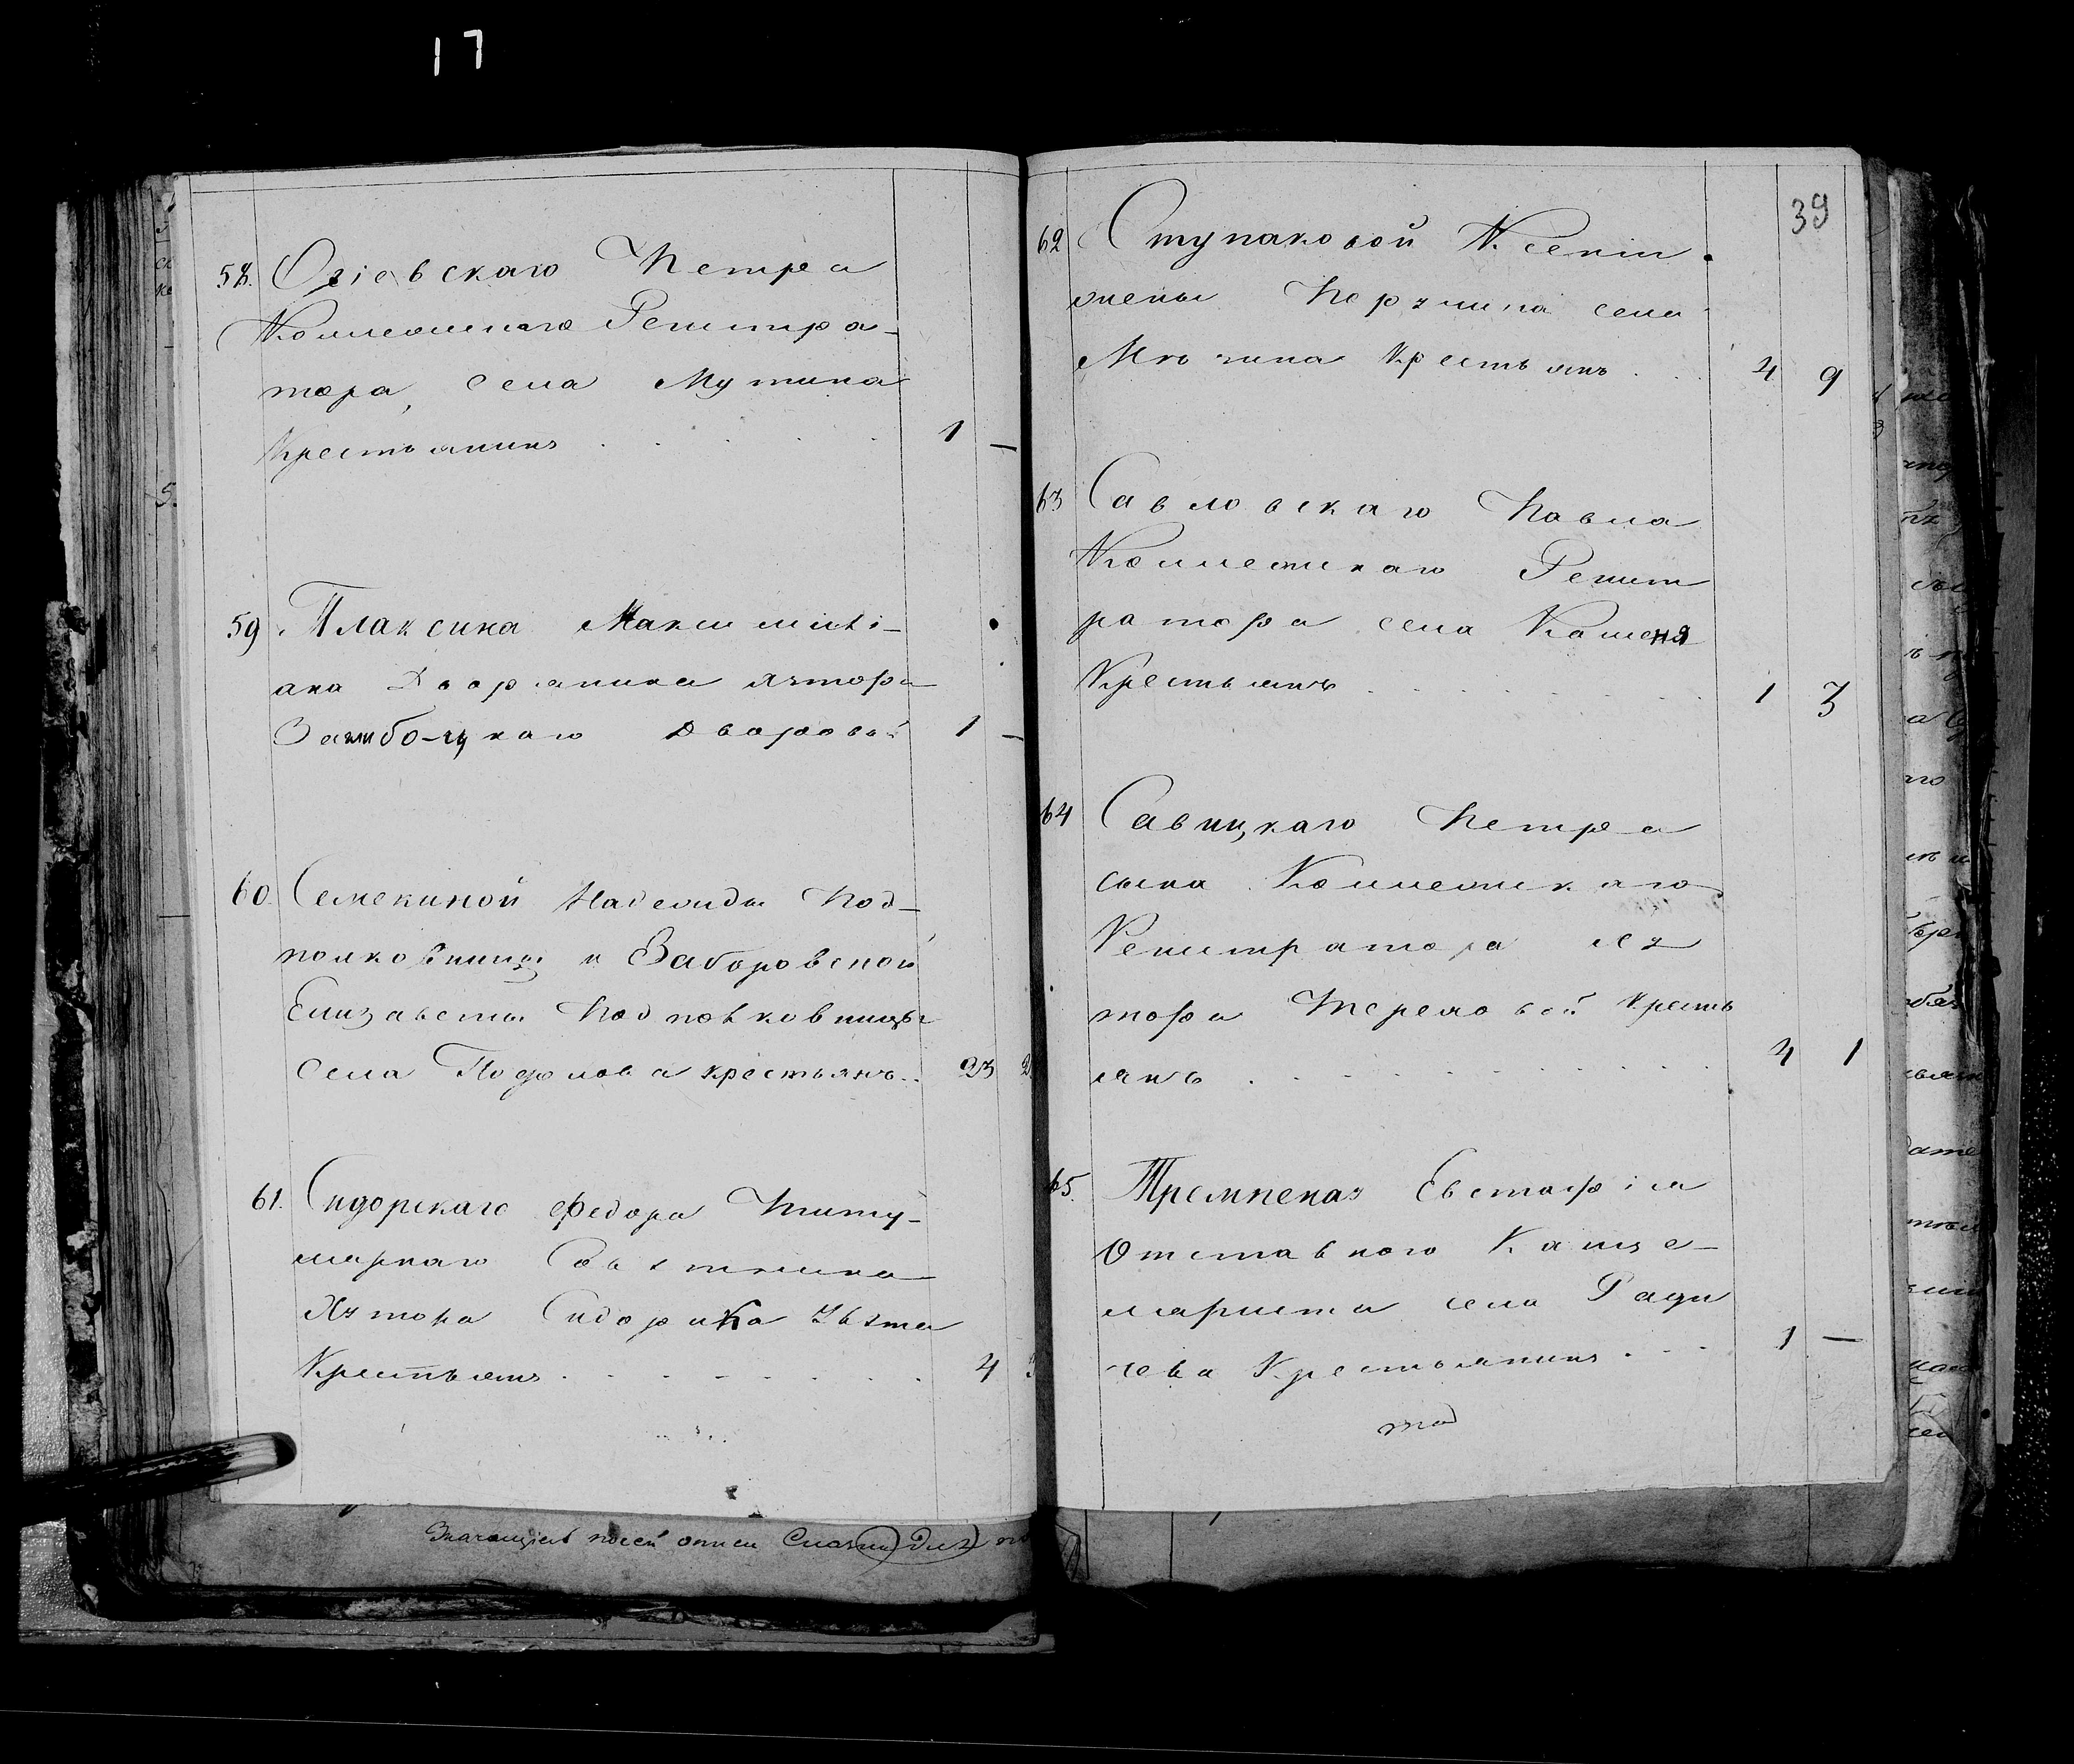 17
58. Огіевскаго Петра
Коллежскаго Регистра-
тора, села Мутина
Крестьянинъ . . . . . 1 —
59. Плаксина Максимилі-
ана Дворянина хутора
дворовый 1 —
60. Семекиной Надежды Под-
полковницы и Заборовской
Елизаветы Подполковницы
села Подолова крестьянъ. . 23 2
61. Сидорскаго Федора Титу-
лярнаго Совѣтника
Хутора Сидорика
Крестьянъ . . . . . . . 4 3
Значащіеся по сей описи
39
62 Ступаковой Ксеніи
жены Поручика села
Крестьянъ . . 4 9
63 Савловскаго Павла
Коллежскаго Регист
ратора села Каменя
Крестьянъ . . . . . . . 1 3
64 Савицкаго Петра
сына Коллежскаго
Регистратора ху
тора Терловой Кресть
янъ . . . . . . . . . 4 1
65. Евстафія
Отставного Канце-
ляриста села Ради
чева Крестьянинъ . . . 1 —